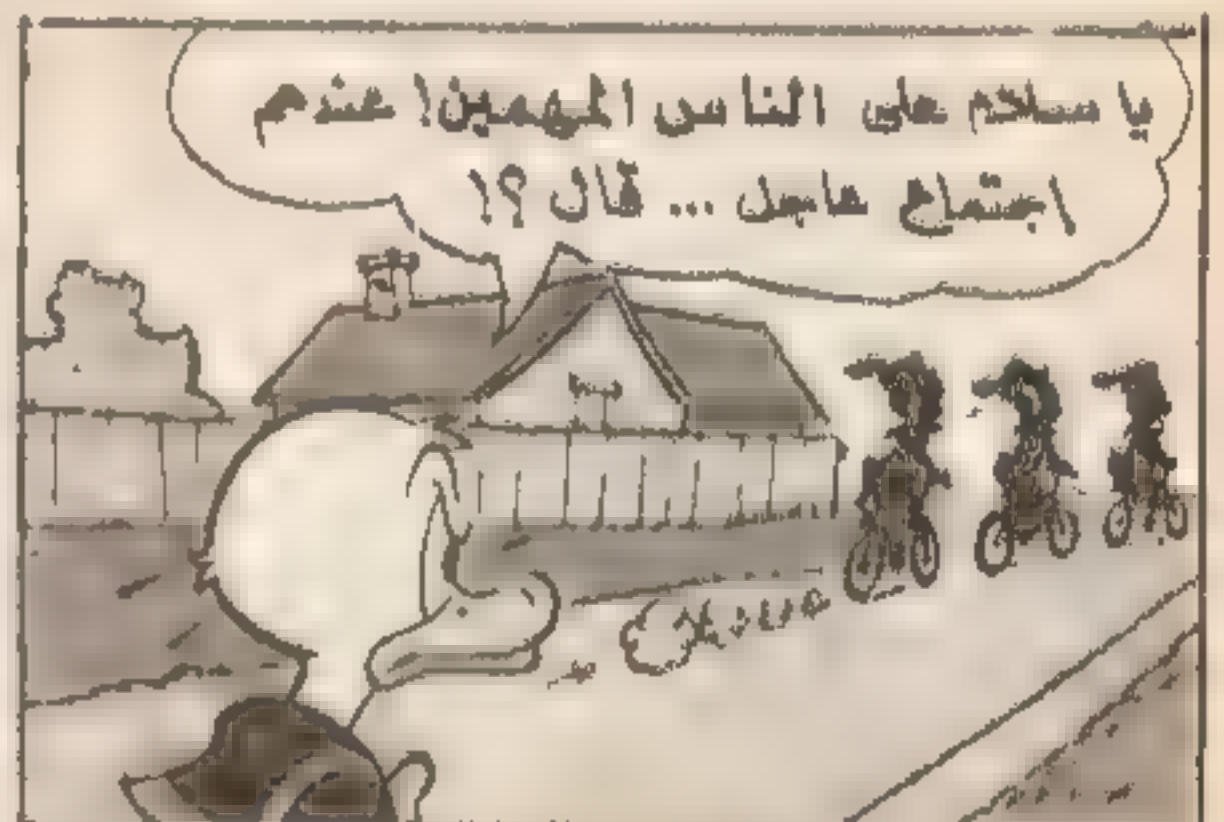 يا سلام على الناس المهمين! عندم
اجتماع عاجل ... قال ؟!